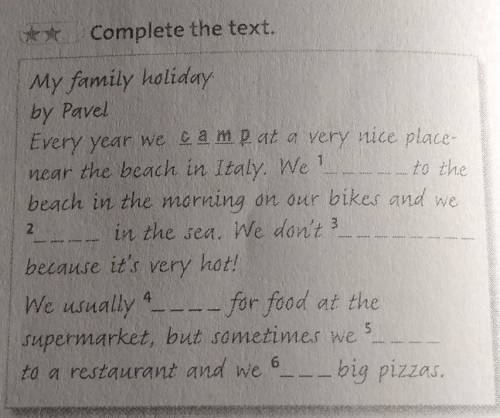 Complete the text.
My family holiday
by Pavel
Every year we c a m p at a very nice place
near the beach in Italy. We 1 _ _ _ _ _ to the
beach in the morning on our bikes and we
2 _ _ _ _ in the sea. We don't 3 _ _ _ _ _ _ _ _
because it's very hot!
We usually 4 _ _ _ _ for food at the
supermarket, but sometimes we 5 _ _ _ _
to a restaurant and we 6 _ _ _ big pizzas.